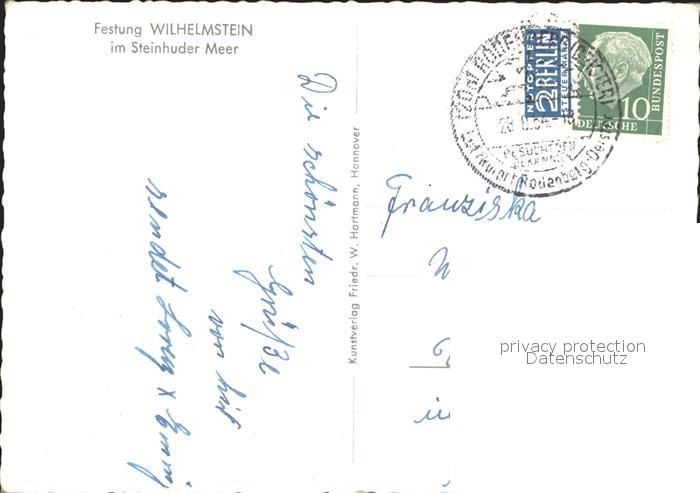 Festung WILHELMSTEIN
im Steinhuder Meer
Die schönsten
Grüße
von hier
sendet
Kunstverlag Friedr. W. Hartmann, Hannover
NOTOPFER
2 BERLIN
STEUERMARKE
10
DEUTSCHE
BUNDESPOST
Luftkurort Rodenberg
Franziska
in
privacy protection
Datenschutz